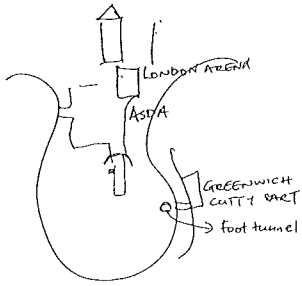 LONDON ARENA
ASDA
GREENWICH
CUTTY SART
foot tunnel